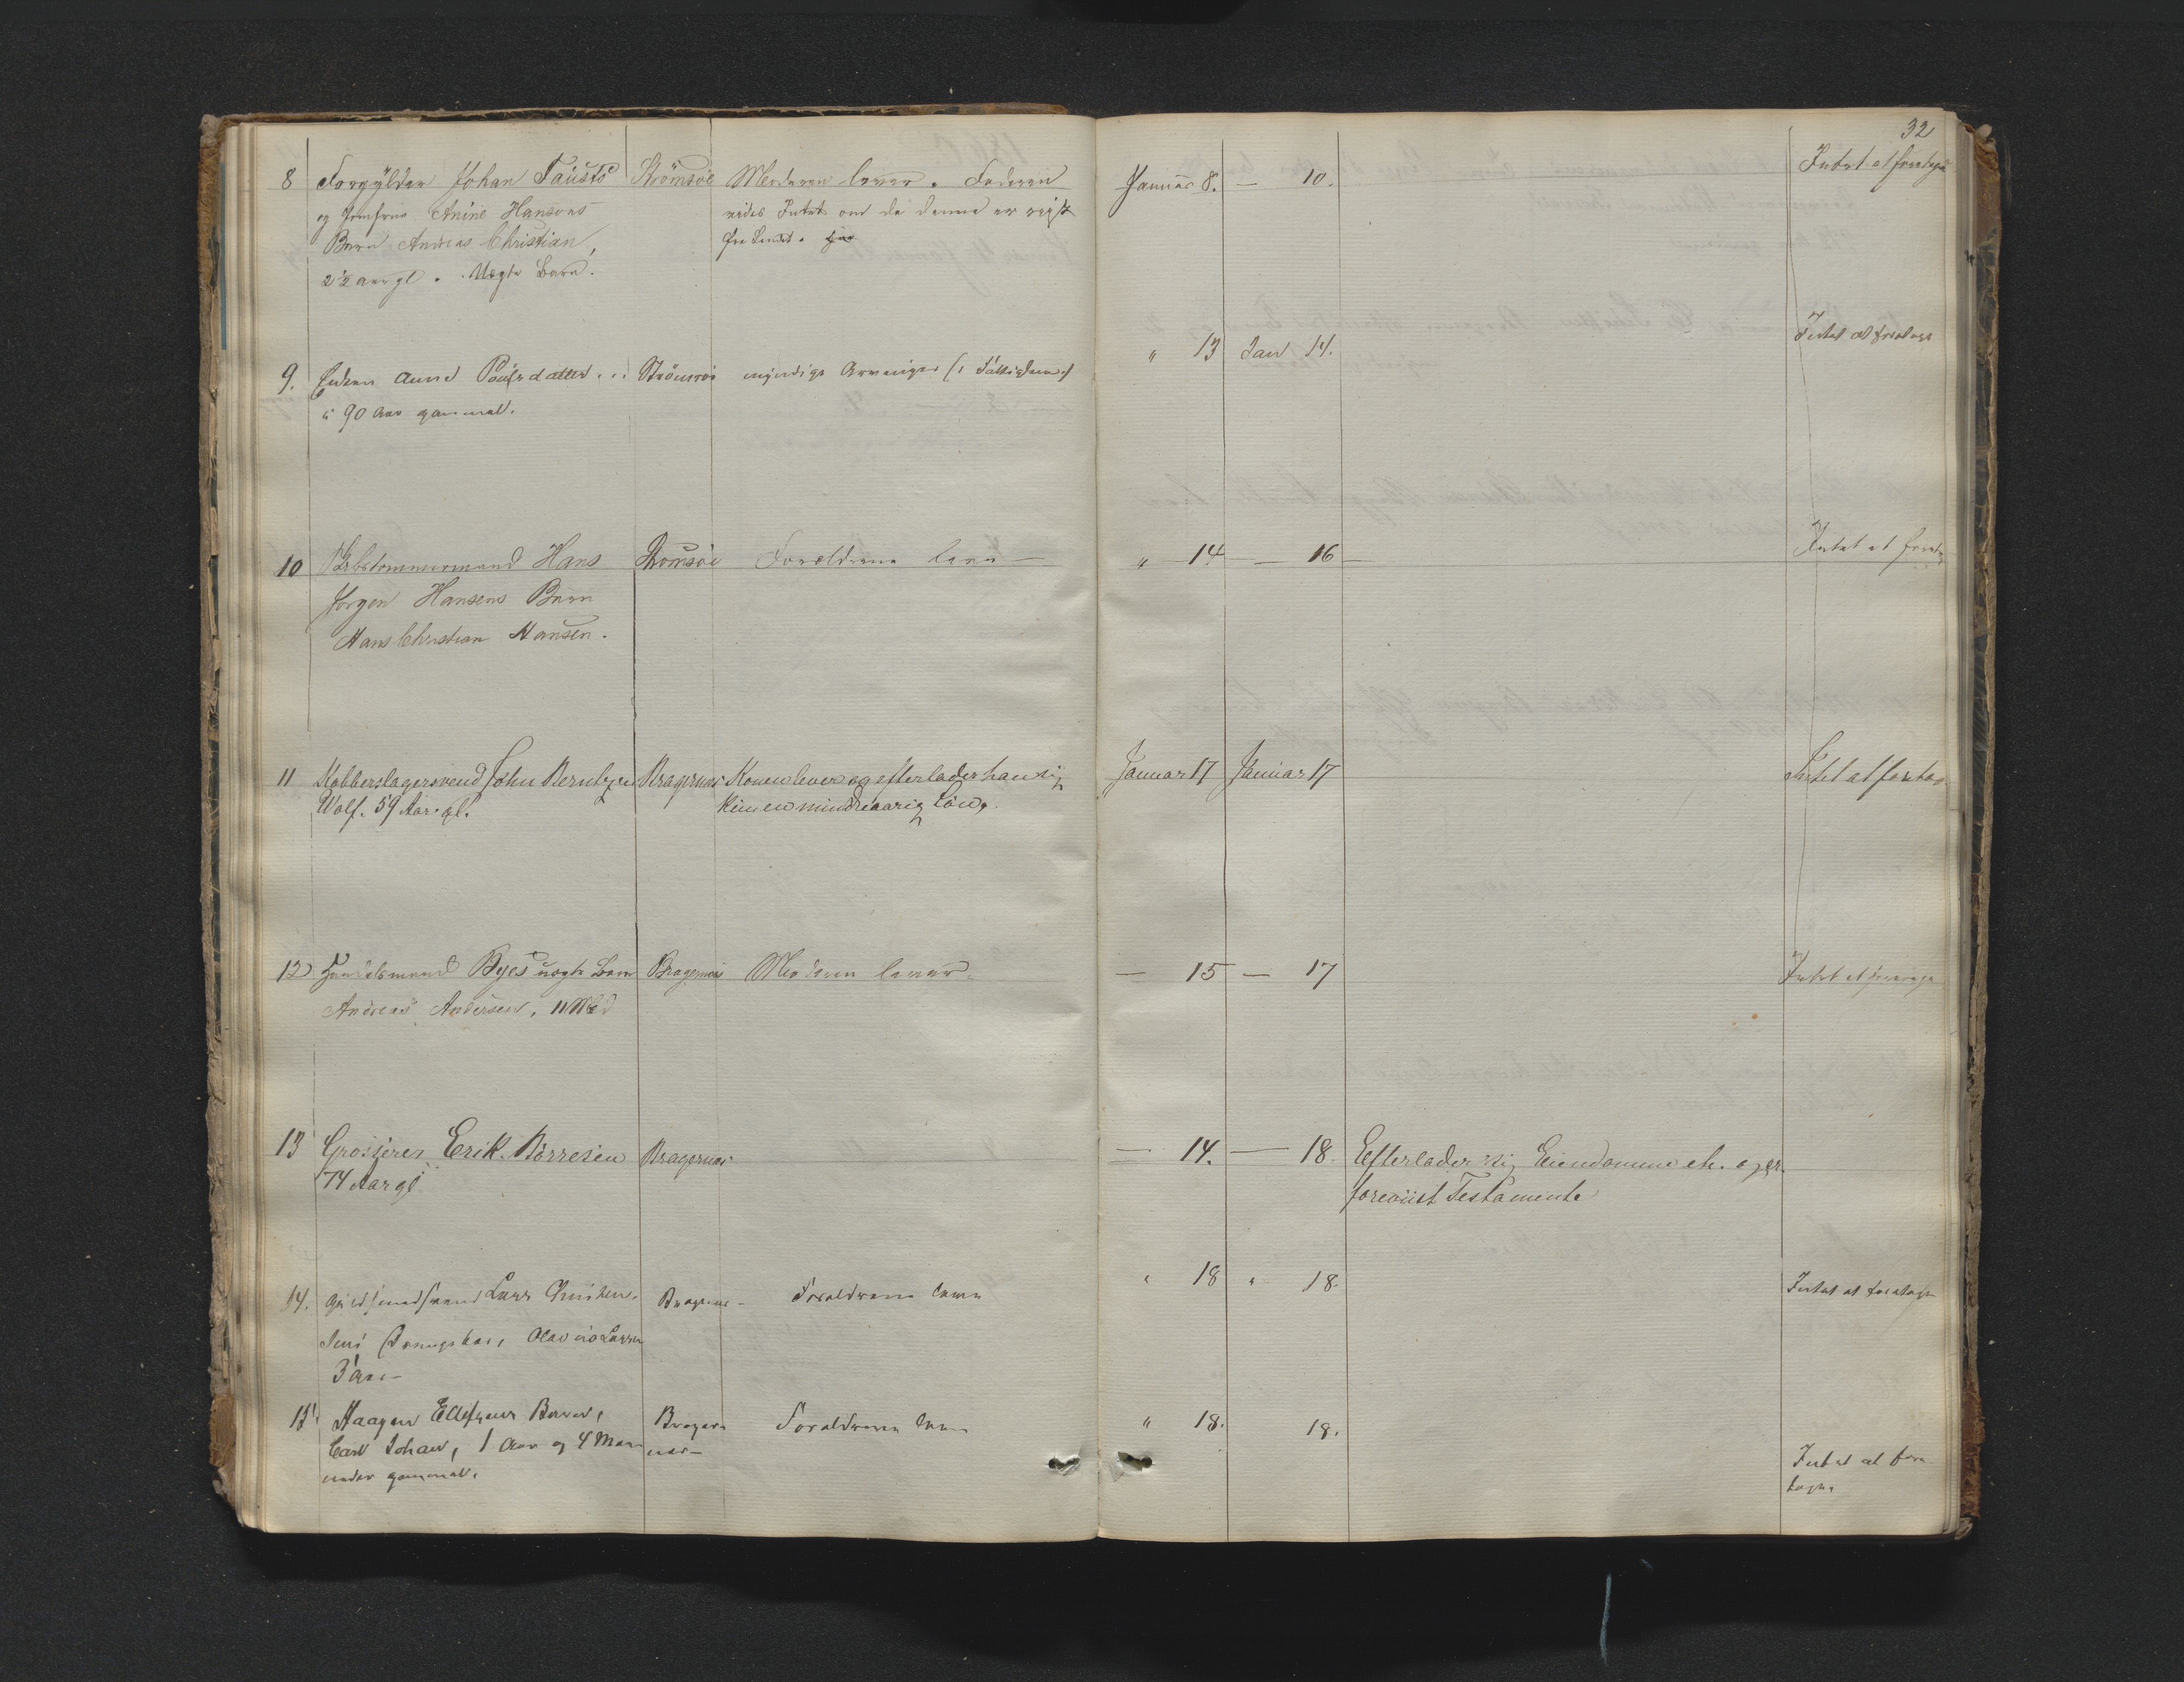 32
8 Forgylder Johan Fausts Strömsöe Moderen lever. Faderen Januar 8. — 10. Intet at foretage
og Jomfrue Anine Hansens vides Intet om da denne er reist
Barn Andreas Christian, fra Landet.
2½ aar gl. Uægte Barn.
9. Enken Anne Poulsdatter Strömsöe myndige Arvinger " 13 Jan 14. Intet at foretage
90 Aar gammel.
10 Hans Strömsöe Forældrene leve — " 14 — 16 — Intet at
Jörgen Hansens Barn
Hans Christian Hansen.
11 Kobberslagersvend John Berntzen Bragernæs Konen lever og efterlader han sig Januar 17 Januar 17 Intet at foretage
Wolf. 59 Aar gl. kun en mindreaarig Sön.
12 Handelsmand Byes uægte Barn Bragernæs Moderen lever. — 15 — 17 Intet at foretage
Andreas Andersen, 11 Md
13 Grosserer Erik Börresen Bragernæs — 14. — 18. Efterlader sig Eiendomme etc. og er
74 Aar gl foreviist Testamente
14. Lars Bragernæs Forældrene leve " 18 " 18. Intet at foretage
Olavius Larsen
3 Aar
15. Haagen Ellefsens Barn, Bragern Forældrene leve " 18. 18.
Carl Johan, 1 Aar og 4 Maa næs — Intet at fore
neder gammel. tages